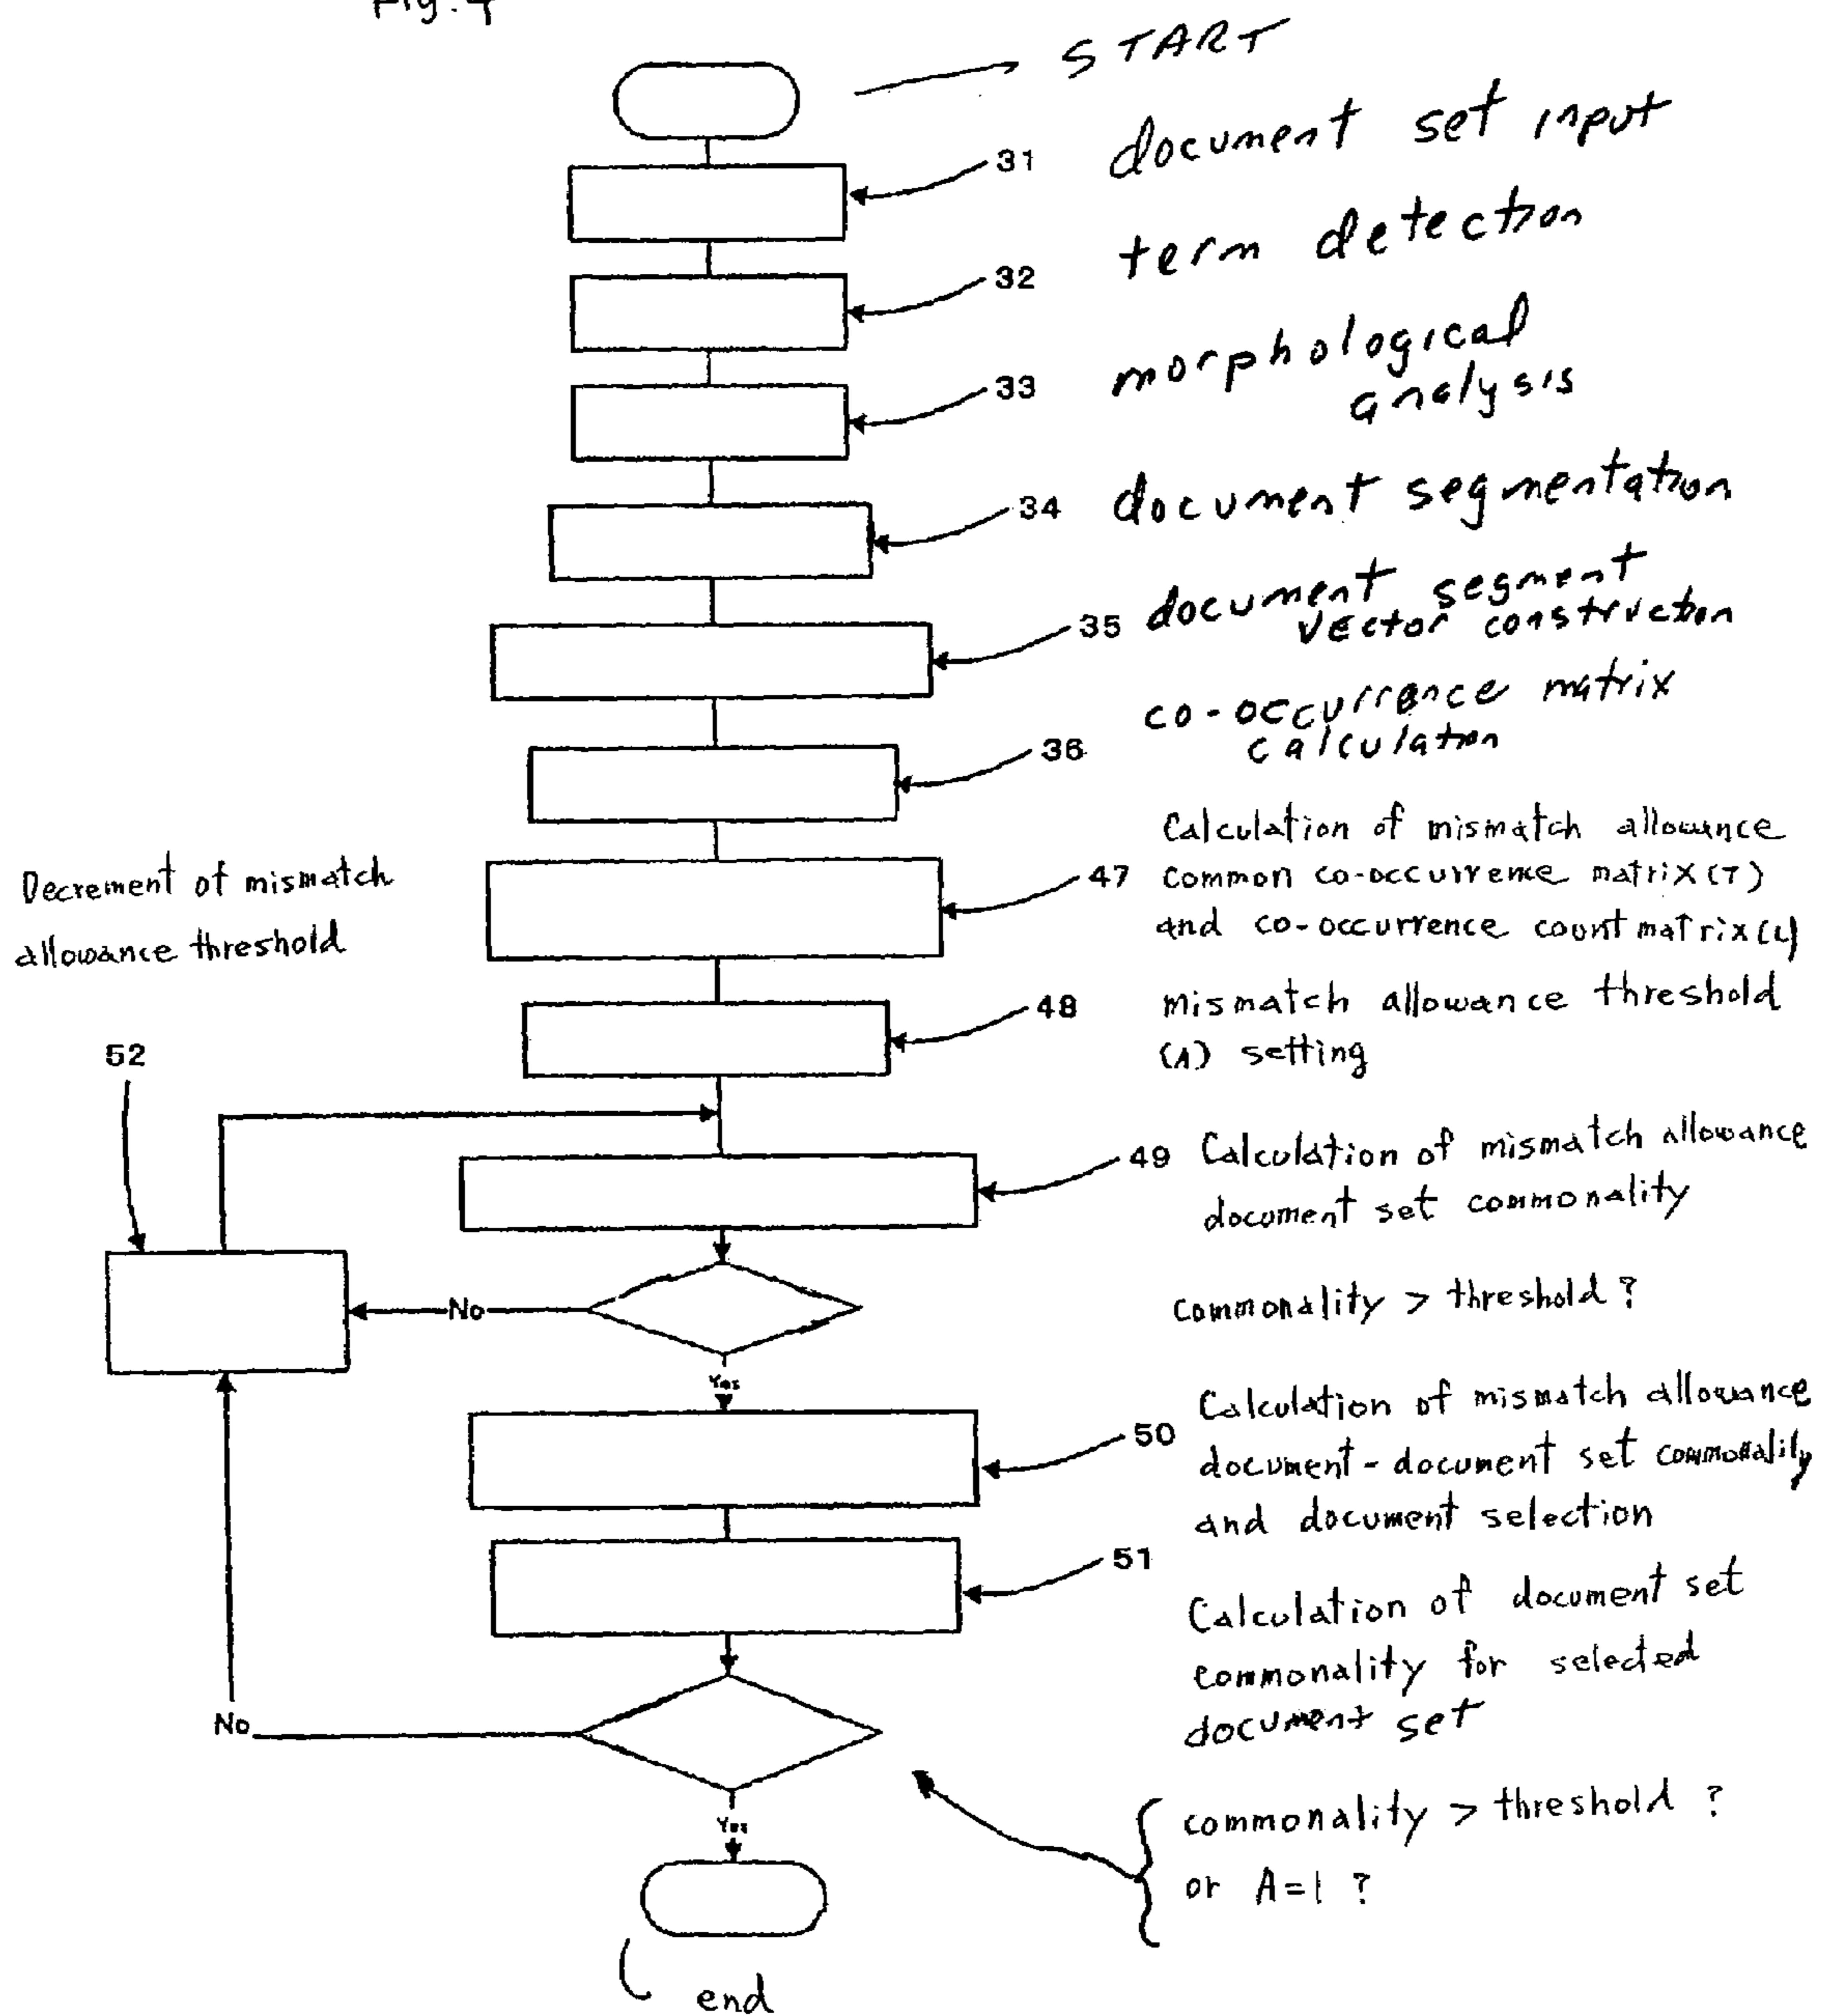 Fig. 4
START
31 document set input
32 term detection
33 morphological
analysis
34 document segmentation
35 document segment
vector construction
36 co-occurrence matrix
calculation
47 Calculation of mismatch allowance
common co-occurrence matrix (T)
and co-occurrence count matrix (L)
48 mismatch allowance threshold
(A) setting
Decrement of mismatch
allowance threshold
52
49 Calculation of mismatch allowance
document set commonality
No
commonality > threshold ?
Yes
50 Calculation of mismatch allowance
document-document set commonality
and document selection
51 Calculation of document set
commonality for selected
document set
No
commonality > threshold ?
or A=1 ?
Yes
end